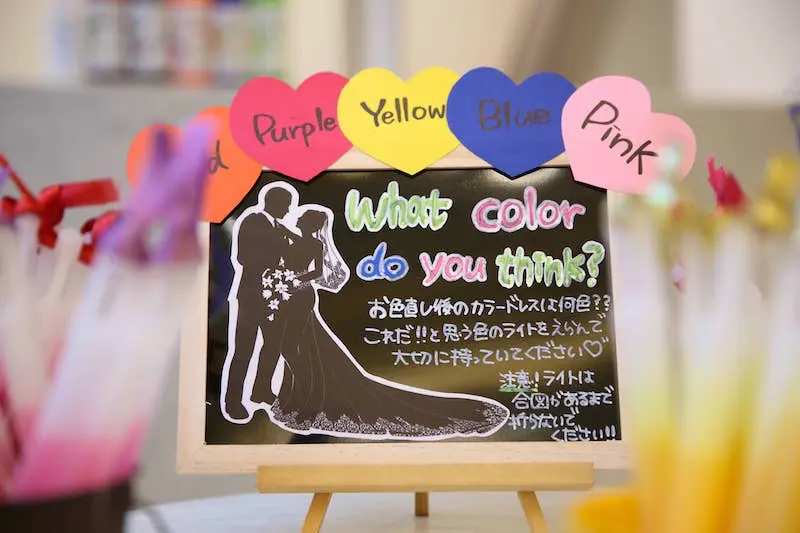 Purple
Yellow
Blue
Pink
What color
do you think?
お色直し後のカラードレスは何色??
これだ!!と思う色のライトをえらんで
大切に持っていてください♡
注意!ライトは
合図があるまで
折らないで
ください!!